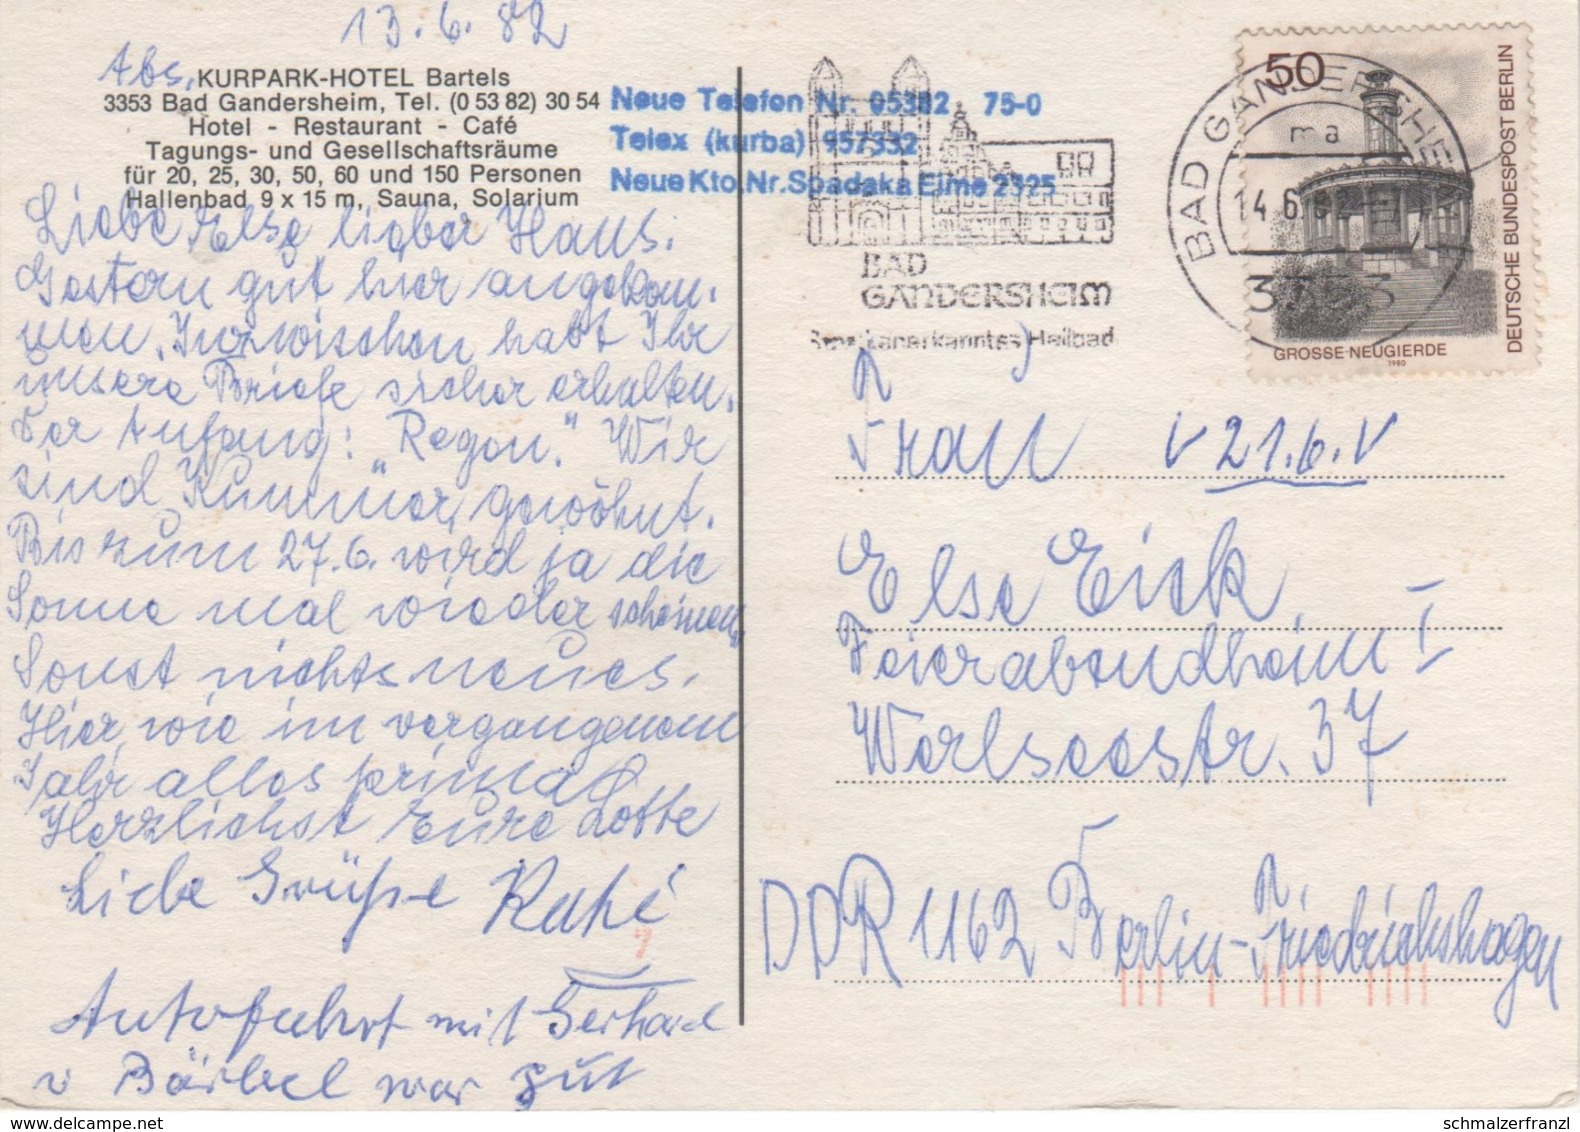 13.6.82
Abs. KURPARK-HOTEL Bartels
3353 Bad Gandersheim, Tel. (0 53 82) 30 54
Hotel - Restaurant - Café
Tagungs- und Gesellschaftsräume
für 20, 25, 30, 50, 60 und 150 Personen
Hallenbad 9 x 15 m, Sauna, Solarium
Neue Telefon Nr. 05382 75-0
Telex (kurba) 957332
Neue Kto.Nr. Spadaka Eime 2325
Liebe Else, lieber Hans.
Gestern gut hier angekom-
men. Inzwischen habt Ihr
unsere Briefe sicher erhalten.
Der Anfang: "Regen." Wir
sind Kummer gewöhnt.
Bis zum 27.6. wird ja die
Sonne mal wieder scheinen.
Sonst nichts neues.
Hier, wie im vergangenem
Jahr alles prima
Herzlichst Eure Lotte
Liebe Grüße
Autofahrt mit Gerhard
u Bärbel war gut
BAD
GANDERSHEIM
Staatl. anerkanntes Heilbad
BAD GANDERSHEIM
ma
14.6.
3353
50
DEUTSCHE BUNDESPOST BERLIN
GROSSE NEUGIERDE
1980
Frau
v 21.6. v
Else Eick
Feierabendheim I
Werlseestr. 37
DDR 1162 Berlin-Friedrichshagen
7
schmalzerfranzl